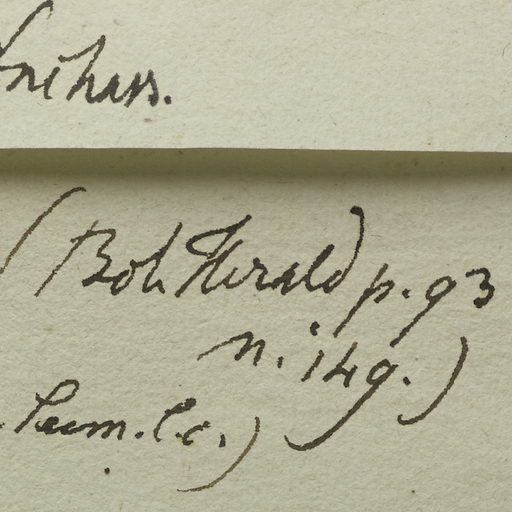 (Bot. Herald p. 93
n. 149.)
Seem. l.c.)